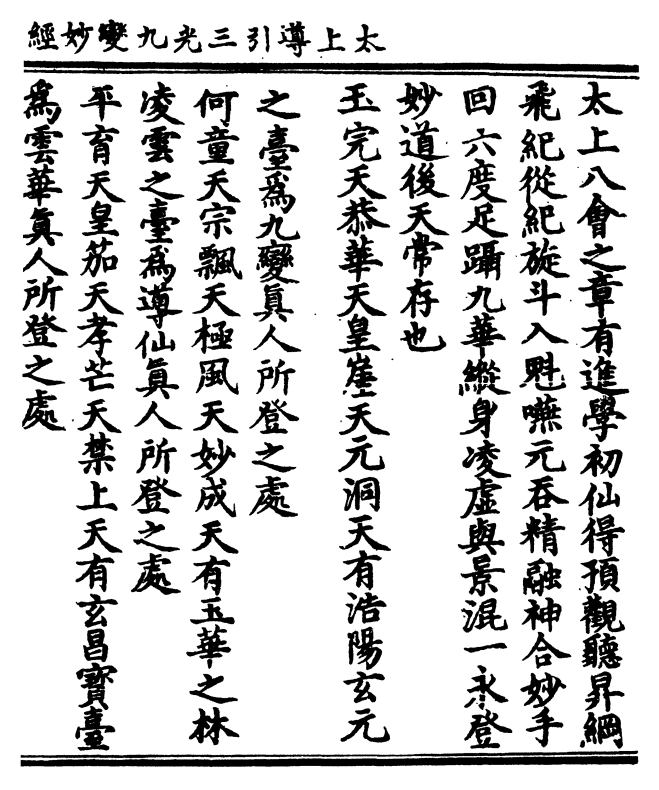 太上導引三光九變妙經
太上八會之章有進學初仙得預觀聽昇綱
飛紀從紀旋斗入魁嚥元吞精融神合妙手
回六度足躡九華縱身凌虛與景混一永登
妙道後天常存也
玉完天恭華天皇崖天元洞天有浩陽玄元
之臺爲九變眞人所登之處
何童天宗飄天極風天妙成天有玉華之林
凌雲之臺爲導仙眞人所登之處
平育天皇茄天孝芒天禁上天有玄昌寶臺
爲雲華眞人所登之處